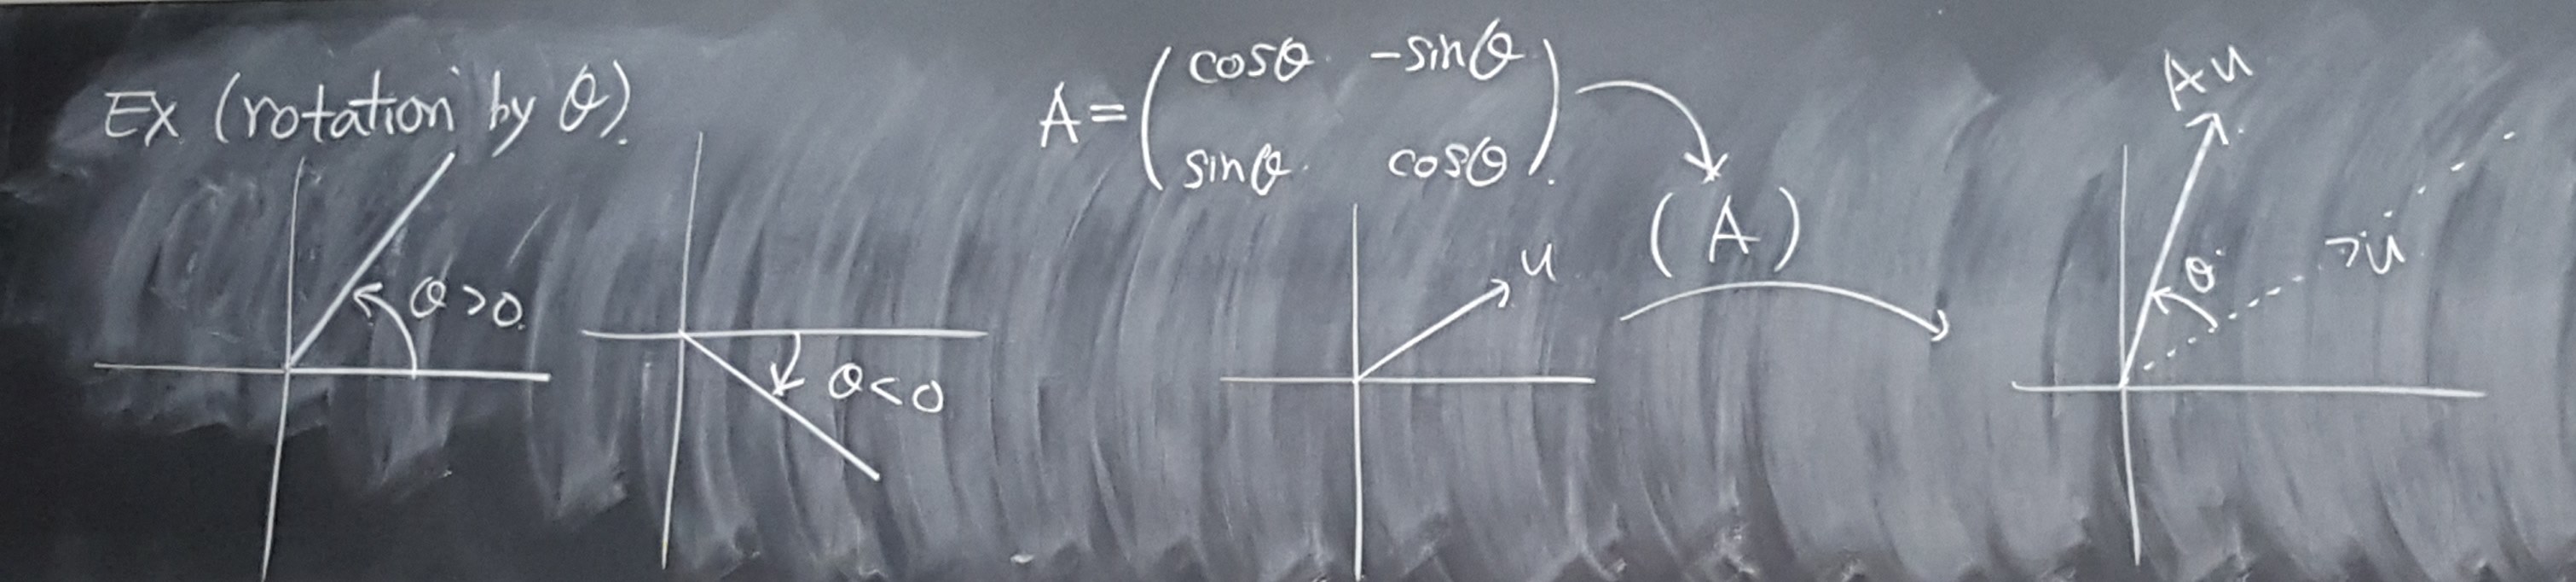 Ex (rotation by θ).
θ>0.
θ<0
A = ( cosθ -sinθ
sinθ cosθ ).
u
(A)
Au
θ
u